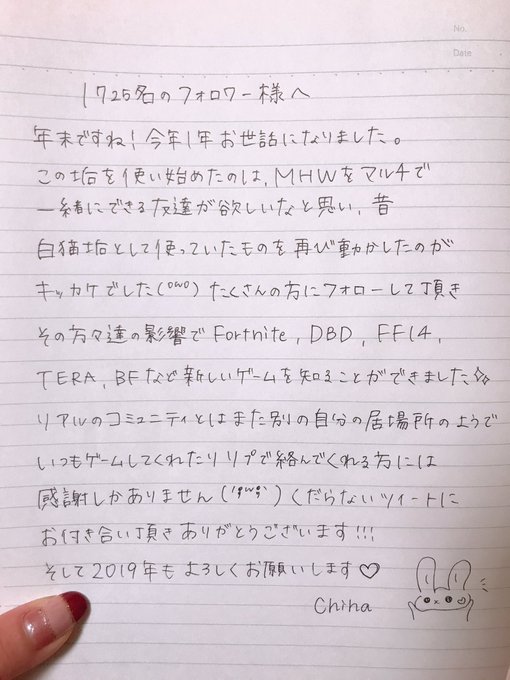 No.
Date
1725名のフォロワー様へ
年末ですね！今年1年お世話になりました。
この垢を使い始めたのは、MHWをマルチで
一緒にできる友達が欲しいなと思い、昔
白猫垢として使っていたものを再び動かしたのが
キッカケでした(°ω°)たくさんの方にフォローして頂き
その方々達の影響でFortnite, DBD, FF14,
TERA, BFなど新しいゲームを知ることができました✧✧
リアルのコミュニティとはまた別の自分の居場所のようで
いつもゲームしてくれたりリプで絡んでくれる方には
感謝しかありません(´;ω;`)くだらないツイートに
お付き合い頂きありがとうございます!!!
そして2019年もよろしくお願いします♡
Chiha